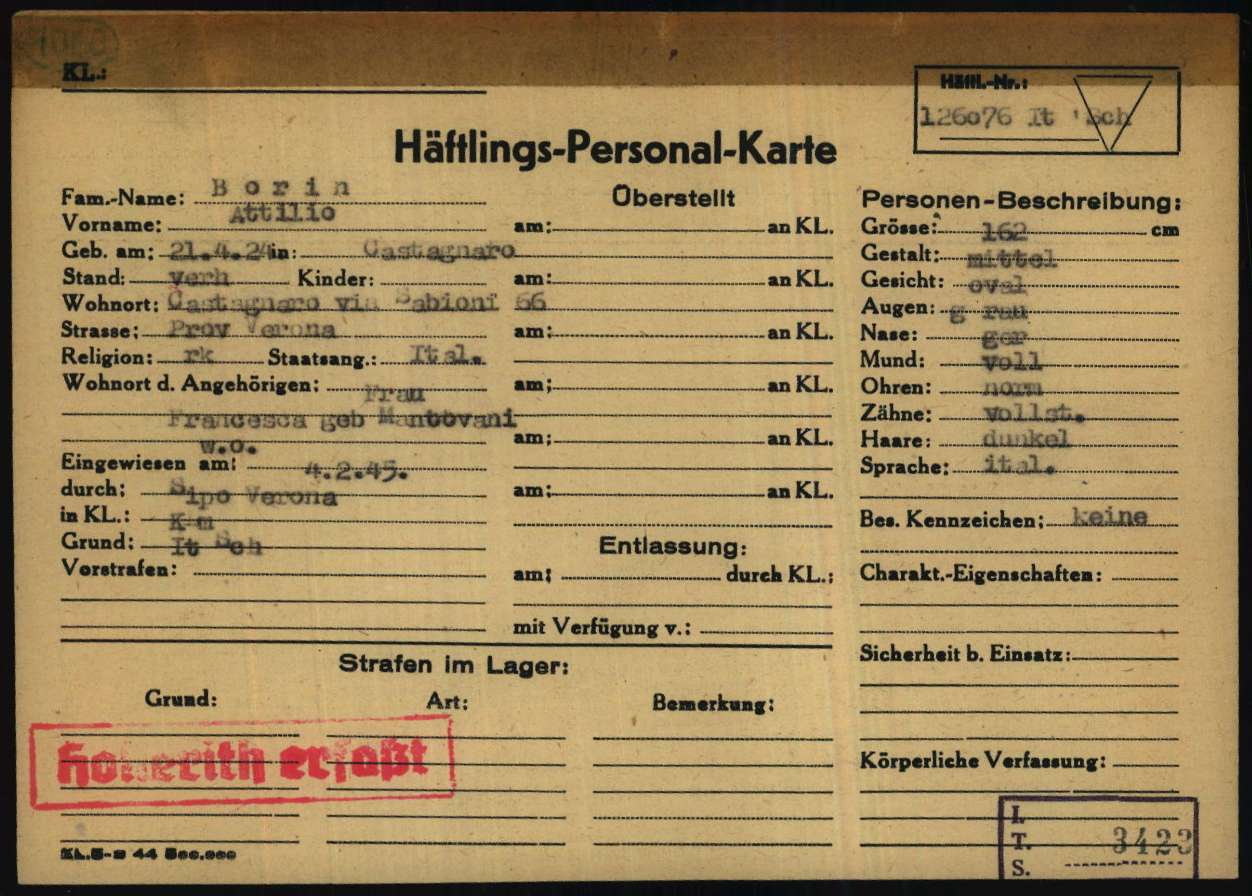 KL.:
Häftl.-Nr.:
126o76 It Sch
Häftlings-Personal-Karte
Fam.-Name: Borin
Vorname: Attilio
Geb. am: 21.4.24 in: Castagnaro
Stand: verh Kinder:
Wohnort: Castagnaro via Sabioni 66
Strasse: Prov Verona
Religion: rk Staatsang.: Ital.
Wohnort d. Angehörigen: Frau
Francesca geb Mantovani
w.o.
Eingewiesen am: 4.2.45.
durch: Sipo Verona
in KL.:
Grund: It Sch
Vorstrafen:
Überstellt
am: an KL.
am: an KL.
am: an KL.
am: an KL.
am: an KL.
am: an KL.
Entlassung:
am: durch KL.:
mit Verfügung v.:
Personen-Beschreibung:
Grösse: 162 cm
Gestalt: mittel
Gesicht: oval
Augen: g rau
Nase: ger
Mund: voll
Ohren: norm
Zähne: vollst.
Haare: dunkel
Sprache: ital.
Bes. Kennzeichen: keine
Charakt.-Eigenschaften:
Sicherheit b. Einsatz:
Körperliche Verfassung:
Strafen im Lager:
Grund: Art: Bemerkung:
Hollerith erfaßt
I.
T. 3423
S.